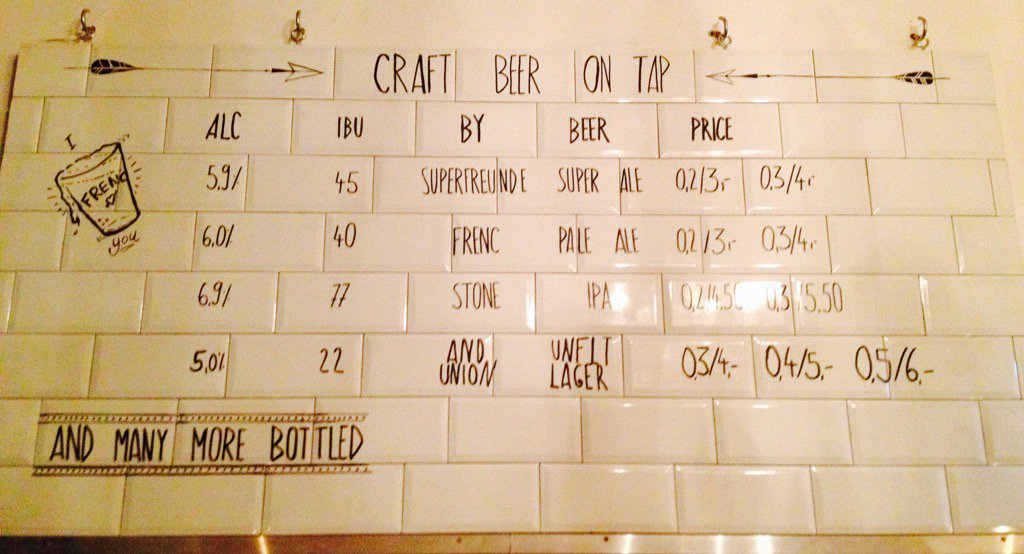 CRAFT BEER ON TAP
ALC IBU BY BEER PRICE
I
FRENC
you
5,9% 45 SUPERFREUNDE SUPER ALE 0,2/3,- 0.3/4,-
6,0% 40 FRENC PALE ALE 0,2/3,- 0,3/4,-
6,9% 77 STONE IPA 0,2/4,50 0,3/5,50
5,0% 22 AND UNION UNFILT LAGER 0,3/4,- 0,4/5,- 0,5/6,-
AND MANY MORE BOTTLED